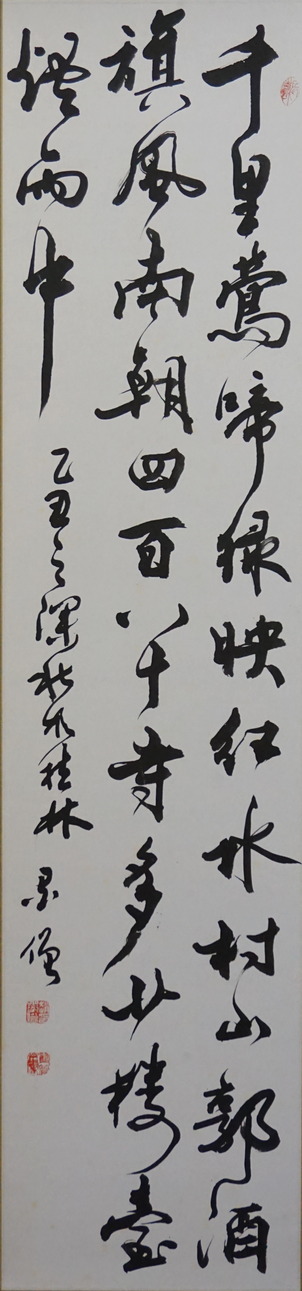 千里鶯啼緑映紅水村山郭酒
旗風南朝四百八十寺多少樓臺
煙雨中
乙丑之深秋於桂林 墨僧